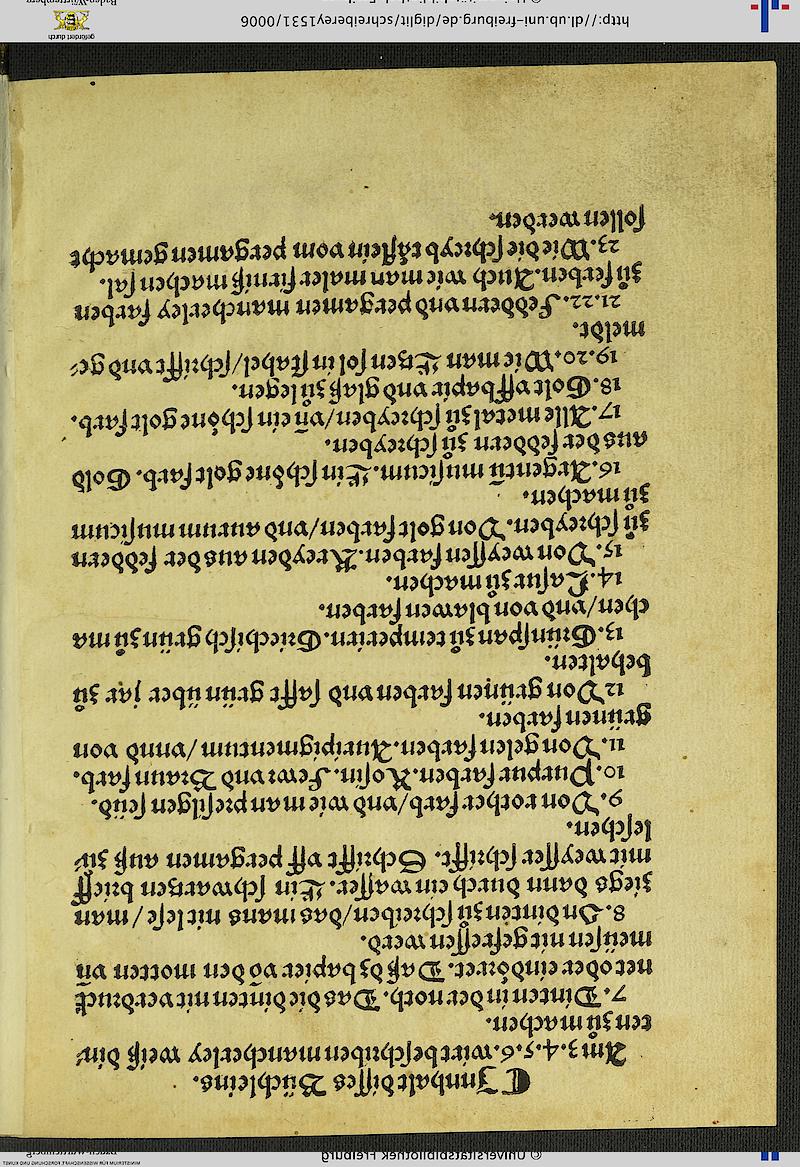 Innhalt disses Büchleins.
Am 3.4.5.6. wirt beschriben mancherley weiß din-
ten zů machen.
7. Dinten in der noth. Das die dinten nit verdruck
net oder eindörret. Daß dz bapier vō den motten vñ
meüsen nit gefressen werd.
8. On dinten zů schreiben/ das mans nit lese/ man
ziegs dann durch ein wasser. Ein schwartzen brieff
mit weysser schrifft. Schrifft vff pergamen auß zu-
leschen.
9. Von rother farb/ vnd wie man presilgen seüd.
10. Purpur farben. Rosin. Fewr vnd Braun farb.
11. Von gelen farben. Auripigmentum/ vnnd von
grünen farben.
12 Von grünen farben vnd safft grün über jar zů
behalten.
13. Grünspan zů temperiern. Griechisch grün zů ma
chen/ vnd von blawen farben.
14. Lasur zů machen.
15. Von weyssen farben. Kreyden aus der feddern
zů schreyben. Von golt farben/ vnd aurum musicum
zů machen.
16. Argentū musicum. Ein schöne golt farb. Gold
aus der feddern zů schreyben.
17. Alle metal zů schreyben/ vñ ein schöne golt farb.
18. Golt vff bapir vnd glaß zů legen.
19.20. Wie man Etzen sol in stahel/ schrifft vnd ge-
meldt.
21.22. Feddern vnd pergamen mancherley farben
zů ferben. Auch wie man maler firniß machen sal.
23. Wie die schreyb täflein vom pergamen gemacht
sollen werden.
http://dl.ub.uni-freiburg.de/diglit/schreiberey1531/0006
© Universitätsbibliothek Freiburg
gefördert durch
Baden-Württemberg
MINISTERIUM FÜR WISSENSCHAFT, FORSCHUNG UND KUNST